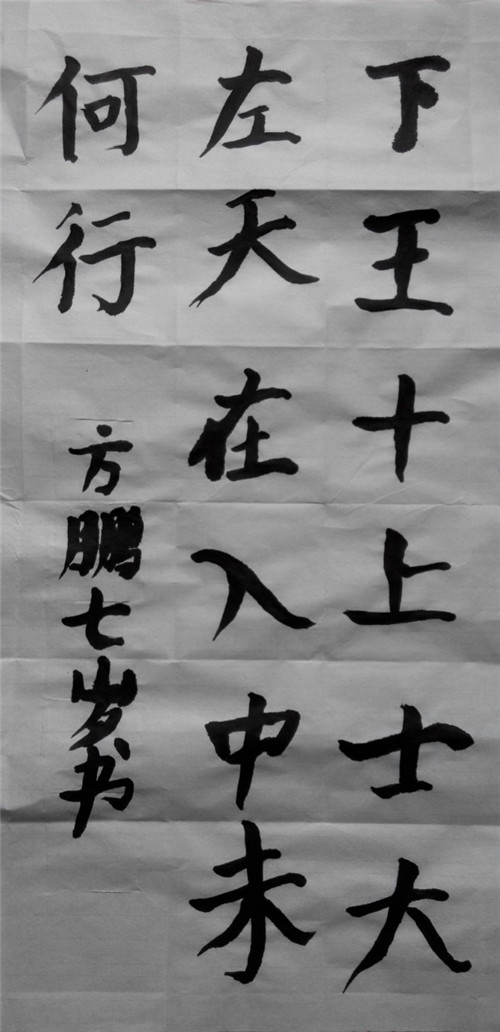 下王十上士大
左天在入中未
何行
方鹏七岁书